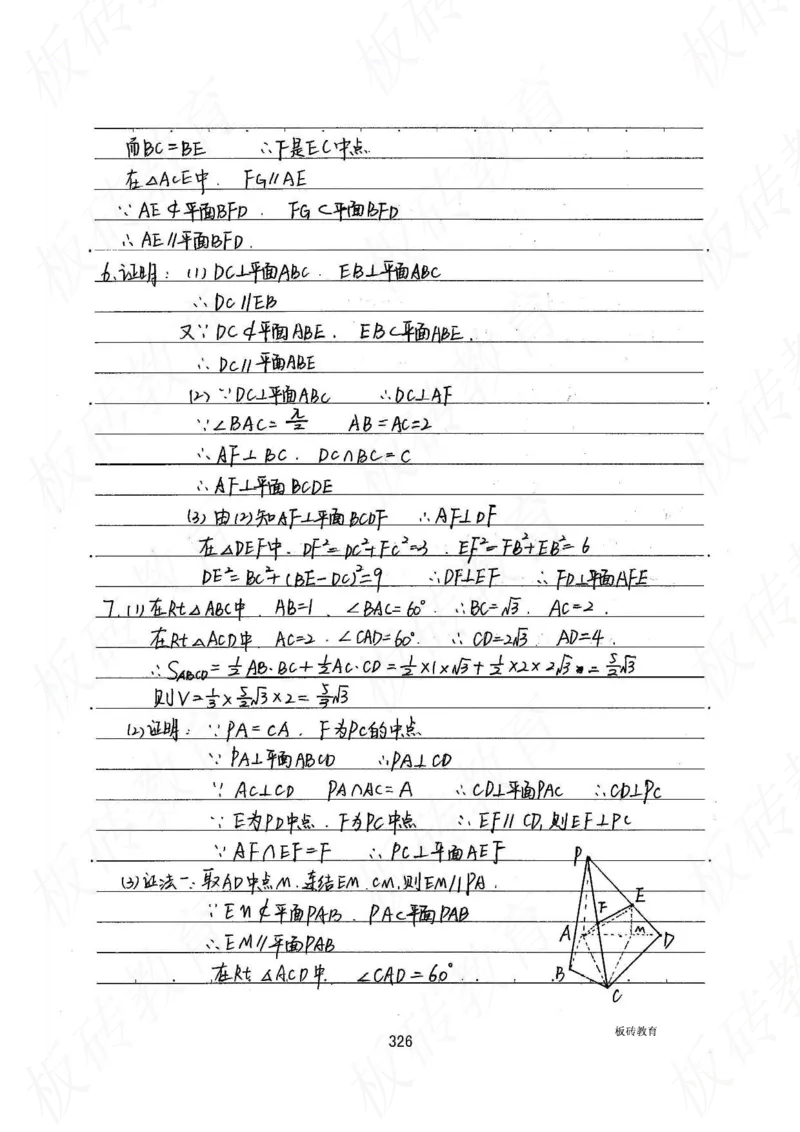 而BC=BE ∴F是EC中点
在△ACE中. FG∥AE
∵AE⊄平面BFD. FG⊂平面BFD
∴AE∥平面BFD.
6.证明: (1) DC⊥平面ABC. EB⊥平面ABC
∴DC∥EB
又∵DC⊄平面ABE. EB⊂平面ABE.
∴DC∥平面ABE
(2) ∵DC⊥平面ABC ∴DC⊥AF
∵∠BAC=π/2 AB=AC=2
∴AF⊥BC. DC∩BC=C
∴AF⊥平面BCDE
(3) 由(2)知AF⊥平面BCDF ∴AF⊥DF
在△DEF中. DF²=DC²+FC²=3. EF²=FB²+EB²=6
DE²=BC²+(BE-DC)²=9 ∴DF⊥EF ∴FD⊥平面AFE
7.(1)在Rt△ABC中. AB=1. ∠BAC=60° ∴BC=√3. AC=2.
在Rt△ACD中 AC=2. ∠CAD=60°. ∴CD=2√3 AD=4.
∴S_ABCD=1/2AB·BC+1/2AC·CD=1/2×1×√3+1/2×2×2√3=5/2√3
则V=1/3×5/2√3×2=5/3√3
(2)证明: ∵PA=CA. F为PC的中点
∵PA⊥平面ABCD ∴PA⊥CD
∵AC⊥CD PA∩AC=A ∴CD⊥平面PAC ∴CD⊥PC
∵E为PD中点. F为PC中点 ∴EF∥CD,则EF⊥PC
∵AF∩EF=F ∴PC⊥平面AEF
(3)证法一:取AD中点M.连结EM.CM.则EM∥PA.
∵EM⊄平面PAB. PA⊂平面PAB
∴EM∥平面PAB
在Rt△ACD中. ∠CAD=60°.
P
E
F
A
M
D
B
C
板砖教育
326